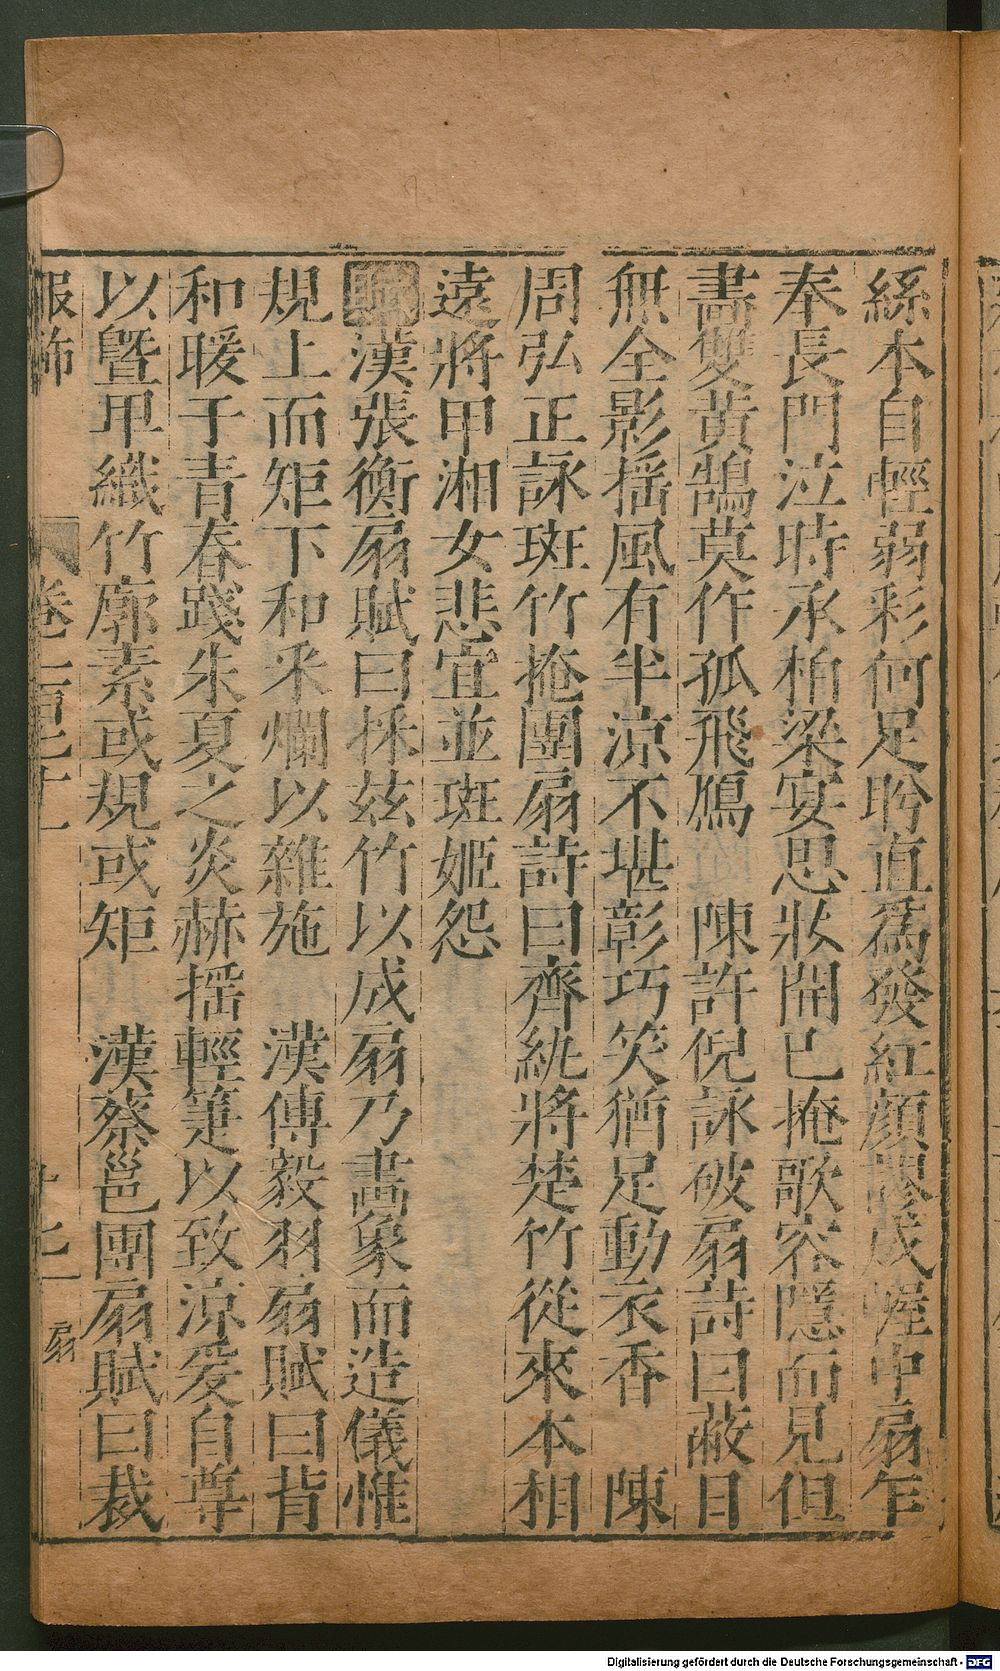 絲本自輕弱彩何足昣直爲發紅顏謬成幄中扇乍
奉長門泣時承栢梁宴思妝開已掩歌容隱而見但
畵雙黄鵠莫作孤飛鴈 陳許倪詠破扇詩曰蔽日
無全影揺風有半凉不堪彰巧笑猶足動衣香 陳
周弘正詠斑竹掩團扇詩曰齊紈將楚竹從來本相
遠將甲湘女悲宜並斑姬怨
賦漢張衡扇賦曰採兹竹以成扇乃畵象而造儀惟
規上而矩下和采爛以雜施 漢傅毅羽扇賦曰背
和暖于青春踐朱夏之炎赫揺輕箑以致凉爰自尊
以曁甲織竹廓素或規或矩 漢蔡邕團扇賦曰裁
服飾 卷一百七十一 十七 扇
Digitalisierung gefördert durch die Deutsche Forschungsgemeinschaft - DFG